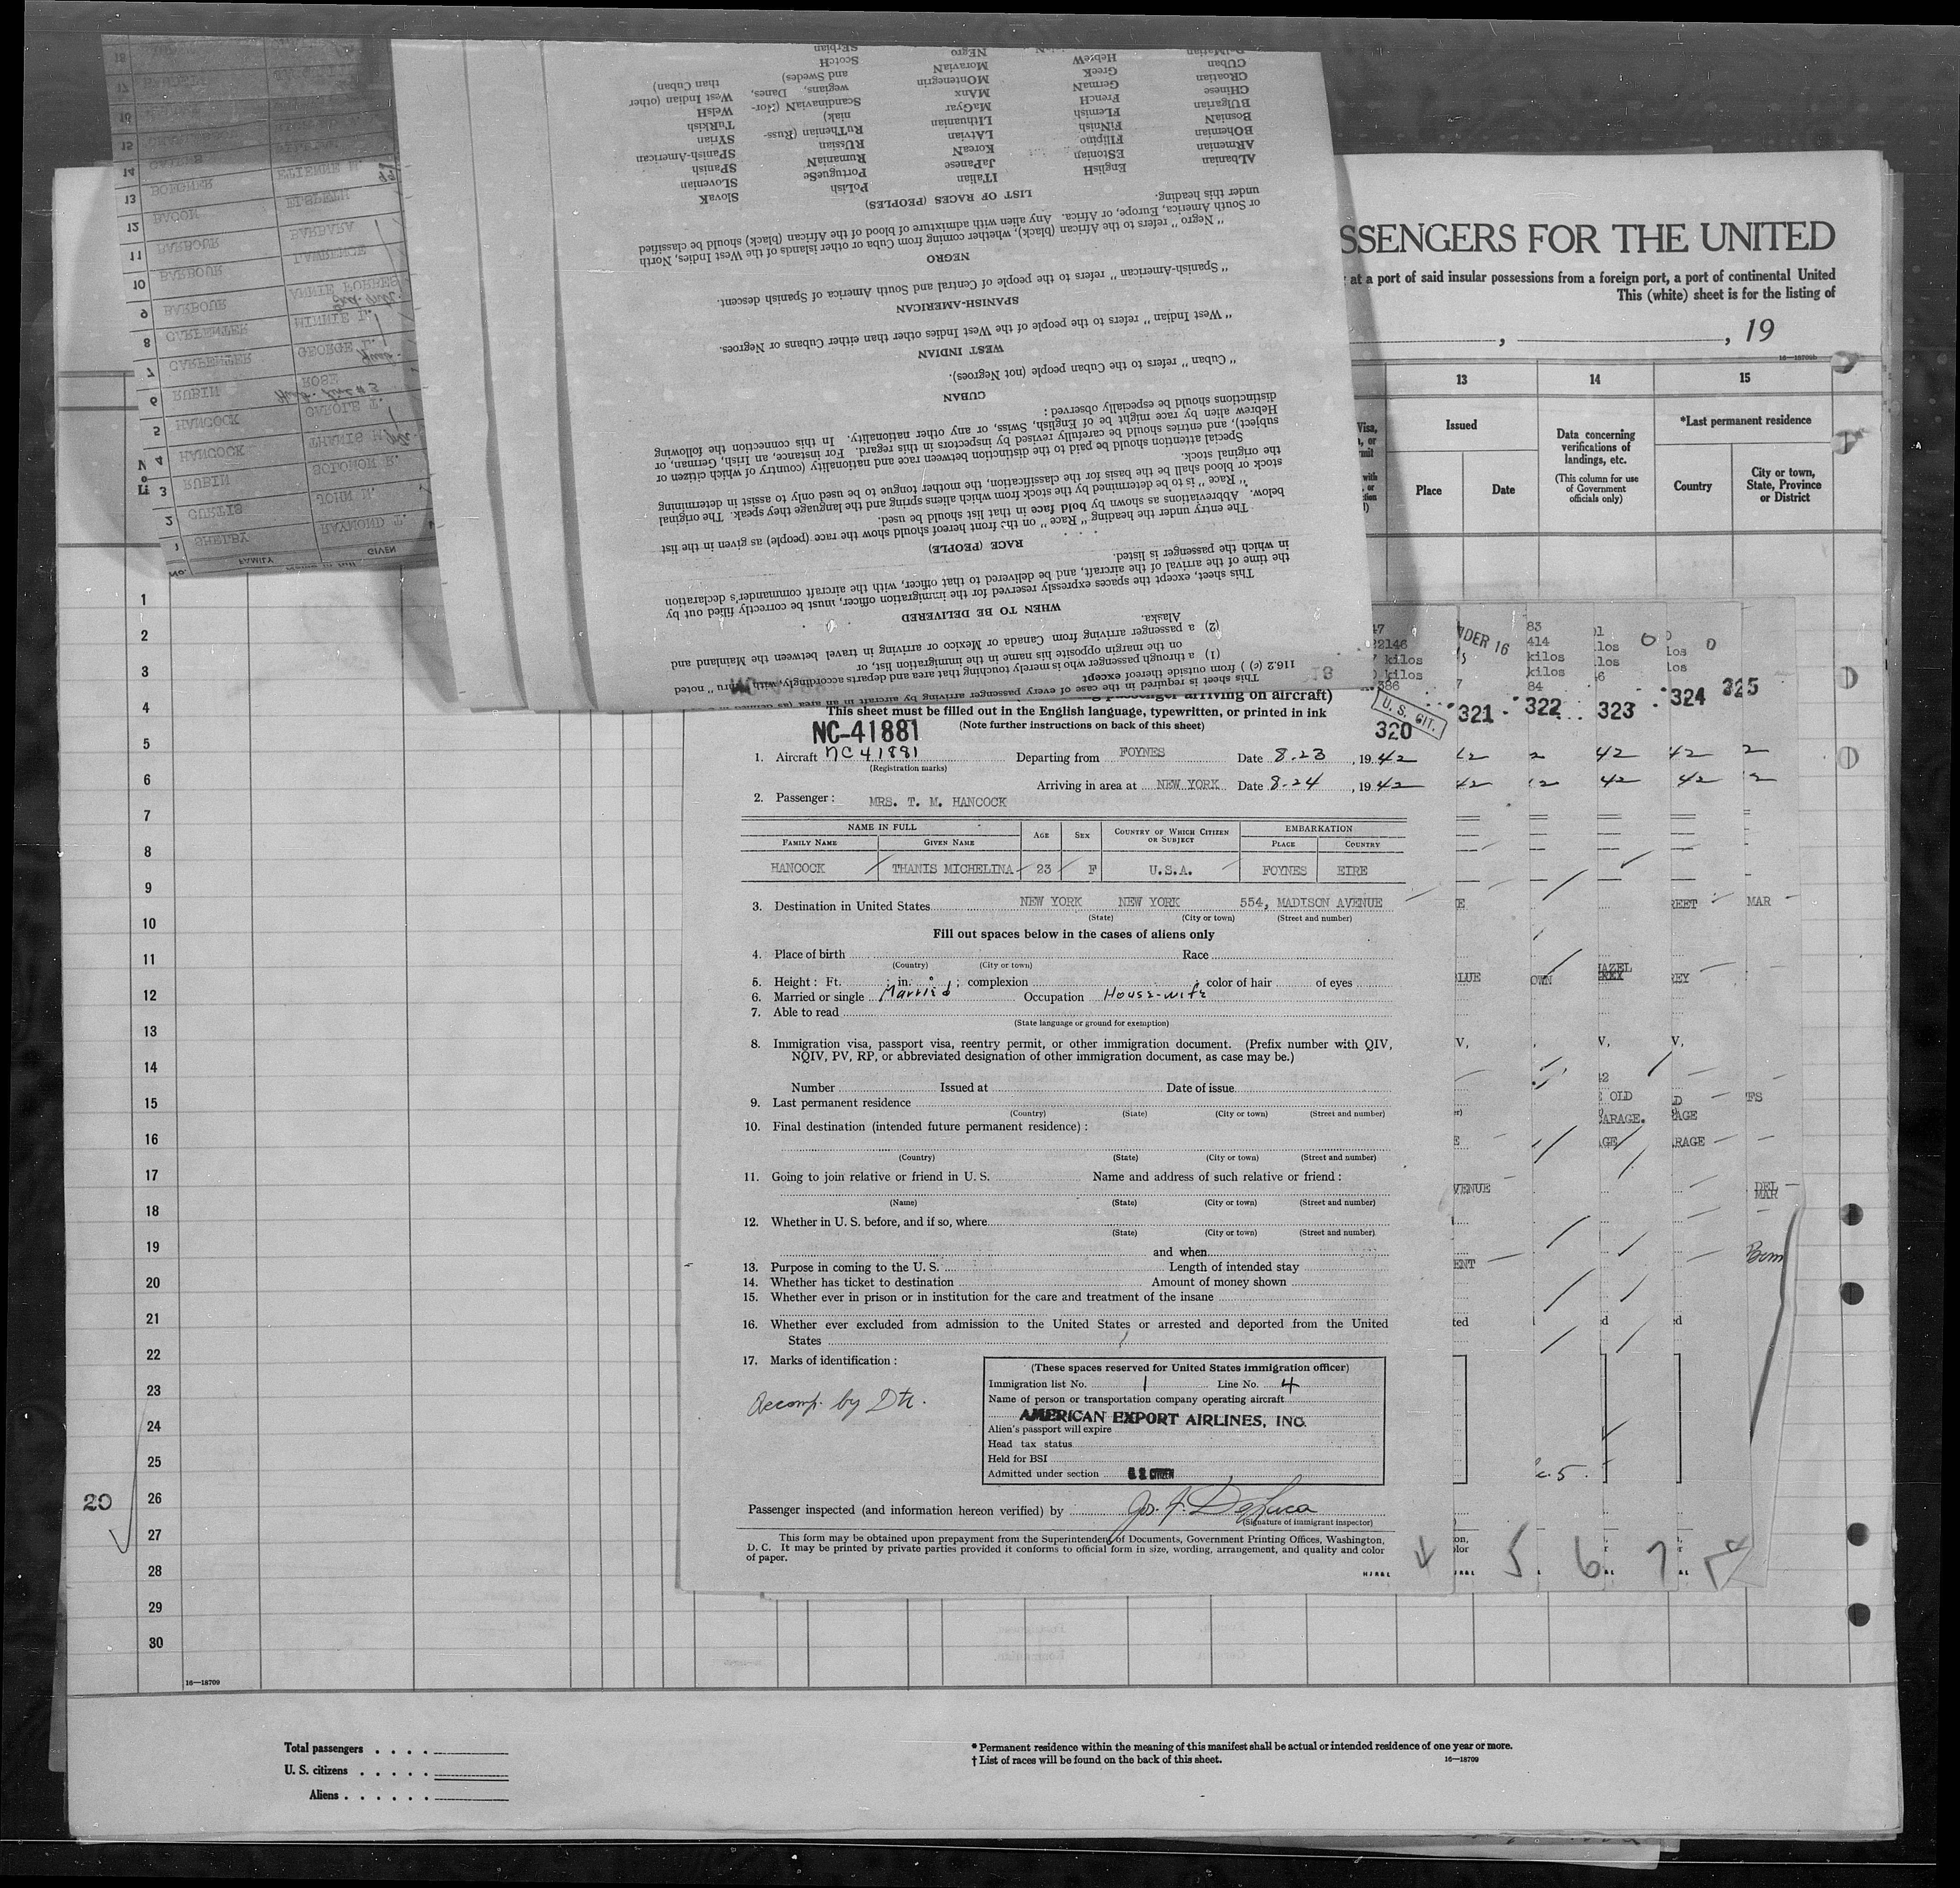 SSENGERS FOR THE UNITED
at a port of said insular possessions from a foreign port, a port of continental United
This (white) sheet is for the listing of
, , 19
16—18709b
13 14 15
Issued
Place Date
Data concerning
verifications of
landings, etc.
(This column for use
of Government
officials only)
*Last permanent residence
Country
City or town,
State, Province
or District
No. FAMILY GIVEN
1 SHELBY RAYMOND T.
2 CURTIS JOHN N.
3 RUBIN SOLOMON R.
4 HANCOCK THANIS M.
5 HANCOCK CAROLE T.
6 RUBIN ROSE
7 CARPENTER GEORGE L.
8 CARPENTER MINNIE L.
9 BARBOUR ANNIE FORBES
10 BARBOUR LAWRENCE
11 BARBOUR BARBARA
12 BACON ELSPETH
13 BOEGNER ETIENNE M.
14
15
16
17
18
This sheet is required in the case of every passenger arriving by aircraft in an area
116.2 (c) ) from outside thereof except
(1) a through passenger who is merely touching that area and departs accordingly, with "thru" noted
on the margin opposite his name in the immigration list, or
(2) a passenger arriving from Canada or Mexico or arriving in travel between the Mainland and
Alaska.
WHEN TO BE DELIVERED
This sheet, except the spaces expressly reserved for the immigration officer, must be correctly filled out by
the time of the arrival of the aircraft, and be delivered to that officer, with the aircraft commander's declaration
in which the passenger is listed.
RACE (PEOPLE)
The entry under the heading "Race" on the front hereof should show the race (people) as given in the list
below. Abbreviations as shown by bold face in that list should be used.
"Race" is to be determined by the stock from which aliens spring and the language they speak. The original
stock or blood shall be the basis for the classification, the mother tongue to be used only to assist in determining
the original stock.
Special attention should be paid to the distinction between race and nationality (country of which citizen or
subject), and entries should be carefully revised by inspectors in this regard. For instance, an Irish, German, or
Hebrew alien by race might be of English, Swiss, or any other nationality. In this connection the following
distinctions should be especially observed:
CUBAN
"Cuban" refers to the Cuban people (not Negroes).
WEST INDIAN
"West Indian" refers to the people of the West Indies other than either Cubans or Negroes.
SPANISH-AMERICAN
"Spanish-American" refers to the people of Central and South America of Spanish descent.
NEGRO
"Negro" refers to the African (black), whether coming from Cuba or other islands of the West Indies, North
or South America, Europe, or Africa. Any alien with admixture of blood of the African (black) should be classified
under this heading.
LIST OF RACES (PEOPLES)
ALbanian EnglisH ITalian PoLish SlovaK
ARmenian EStonian JaPanese PortugueSe SLOvenian
BOhemian FIlipino KoreaN RumaniaN SPaniSh
BosniaN FiNnish LAtvian RUssian SPanish-American
BUlgarian FLemish LIthuanian RuThenian (Russ- SYrian
niak) TuRkish
CHinese FrencH MaGyar ScandinaviaN (Nor- WelsH
CRoatian GermaN MAnx wegians, Danes, West Indian (other
CUban GreeK MOntenegrin and Swedes) than Cuban)
HebreW MoraviaN ScotcH
NEgro SErbian
arriving on aircraft)
This sheet must be filled out in the English language, typewritten, or printed in ink
(Note further instructions on back of this sheet)
NC-41881
U. S. CIT.
320 321 322 323 324 325
1. Aircraft NC 41881 Departing from FOYNES Date 8.23, 1942
(Registration marks)
Arriving in area at NEW YORK Date 8.24, 1942
2. Passenger: MRS. T. M. HANCOCK
NAME IN FULL AGE SEX COUNTRY OF WHICH CITIZEN OR SUBJECT EMBARKATION
FAMILY NAME GIVEN NAME PLACE COUNTRY
HANCOCK THANIS MICHELINA 23 F U.S.A. FOYNES EIRE
3. Destination in United States NEW YORK NEW YORK 554, MADISON AVENUE
(State) (City or town) (Street and number)
Fill out spaces below in the cases of aliens only
4. Place of birth Race
(Country) (City or town)
5. Height: Ft. in. ; complexion ; color of hair of eyes
6. Married or single Married Occupation House-wife
7. Able to read
(State language or ground for exemption)
8. Immigration visa, passport visa, reentry permit, or other immigration document. (Prefix number with QIV,
NQIV, PV, RP, or abbreviated designation of other immigration document, as case may be.)
Number Issued at Date of issue
9. Last permanent residence
(Country) (State) (City or town) (Street and number)
10. Final destination (intended future permanent residence):
(Country) (State) (City or town) (Street and number)
11. Going to join relative or friend in U. S. Name and address of such relative or friend:
(Name) (State) (City or town) (Street and number)
12. Whether in U. S. before, and if so, where
(State) (City or town) (Street and number)
and when
13. Purpose in coming to the U. S. Length of intended stay
14. Whether has ticket to destination Amount of money shown
15. Whether ever in prison or in institution for the care and treatment of the insane
16. Whether ever excluded from admission to the United States or arrested and deported from the United
States
17. Marks of identification:
Accomp. by Dtr.
(These spaces reserved for United States immigration officer)
Immigration list No. 1 Line No. 4
Name of person or transportation company operating aircraft
AMERICAN EXPORT AIRLINES, INC.
Alien's passport will expire
Head tax status
Held for BSI
Admitted under section U S CITIZEN
Passenger inspected (and information hereon verified) by Jos. F. DeLuca
(Signature of immigrant inspector)
This form may be obtained upon prepayment from the Superintendent of Documents, Government Printing Offices, Washington,
D. C. It may be printed by private parties provided it conforms to official form in size, wording, arrangement, and quality and color
of paper.
1
2
3
4
5
6
7
8
9
10
11
12
13
14
15
16
17
18
19
20
21
22
23
24
25
26
27
28
29
30
20
4 5 6 7
16—18709
Total passengers
U. S. citizens
Aliens
* Permanent residence within the meaning of this manifest shall be actual or intended residence of one year or more.
† List of races will be found on the back of this sheet.
16—18709